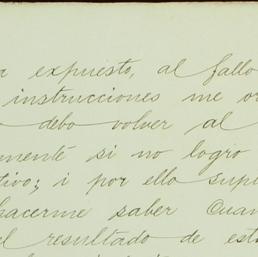 a expuesto, al fallo
instrucciones me o
debo volver al
mente si no logro
tivo; i por ello sup
hacerme saber Cuan
el resultado de est